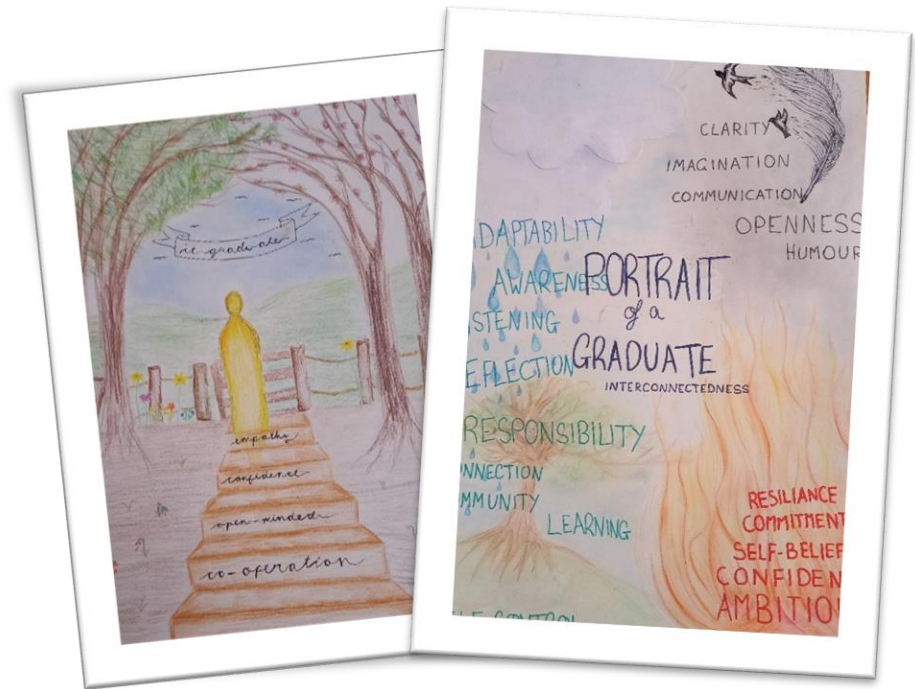 graduate
empathy
confidence
open-minded
co-operation
CLARITY
IMAGINATION
COMMUNICATION
OPENNESS
HUMOUR
DAPTABILITY
AWARENESS
STENING
EFLECTION
PORTRAIT
of a
GRADUATE
INTERCONNECTEDNESS
RESPONSIBILITY
NNECTION
MMUNITY
LEARNING
CONTROL
RESILIANCE
COMMITMENT
SELF-BELIEF
CONFIDEN
AMBITIO